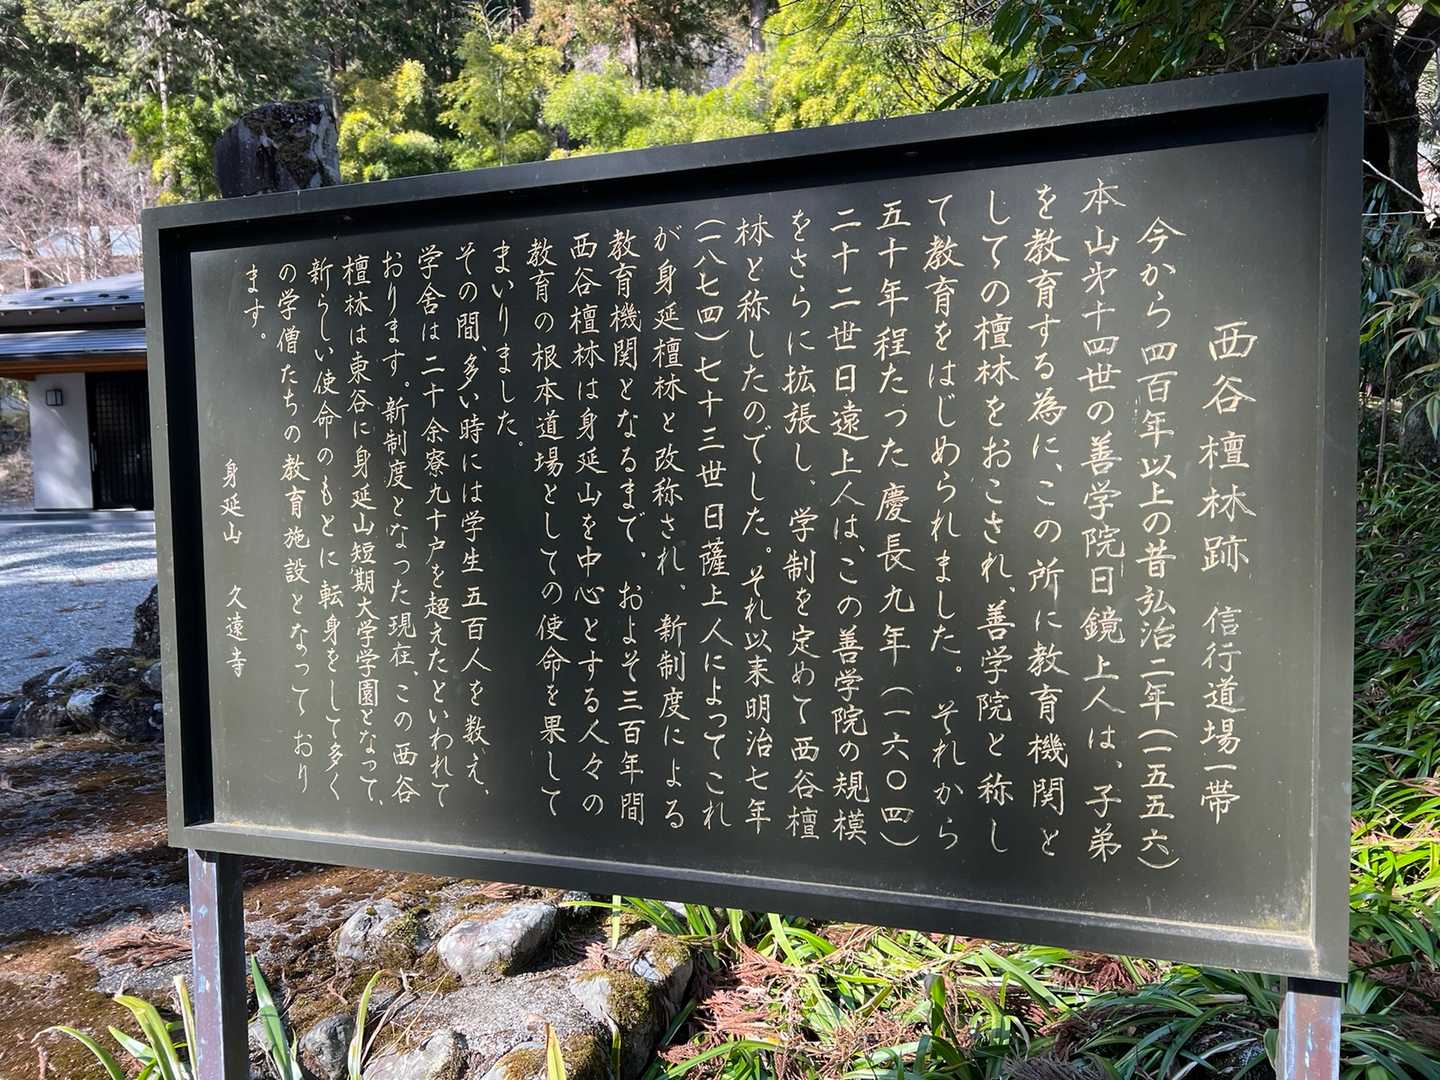 西谷檀林跡 信行道場一帯
今から四百年以上の昔弘治二年(一五五六)
本山第十四世の善学院日鏡上人は、子弟
を教育する為に、この所に教育機関と
しての檀林をおこされ、善学院と称し
て教育をはじめられました。それから
五十年程たった慶長九年(一六〇四)
二十二世日遠上人は、この善学院の規模
をさらに拡張し、学制を定めて西谷檀
林と称したのでした。それ以来明治七年
(一八七四)七十三世日薩上人によってこれ
が身延檀林と改称され、新制度による
教育機関となるまで、およそ三百年間
西谷檀林は身延山を中心とする人々の
教育の根本道場としての使命を果して
まいりました。
その間、多い時には学生五百人を数え、
学舎は二十余寮九十戸を超えたといわれて
おります。新制度となった現在、この西谷
檀林は東谷に身延山短期大学学園となって、
新らしい使命のもとに転身をして多く
の学僧たちの教育施設となって、おり
ます。
身延山 久遠寺